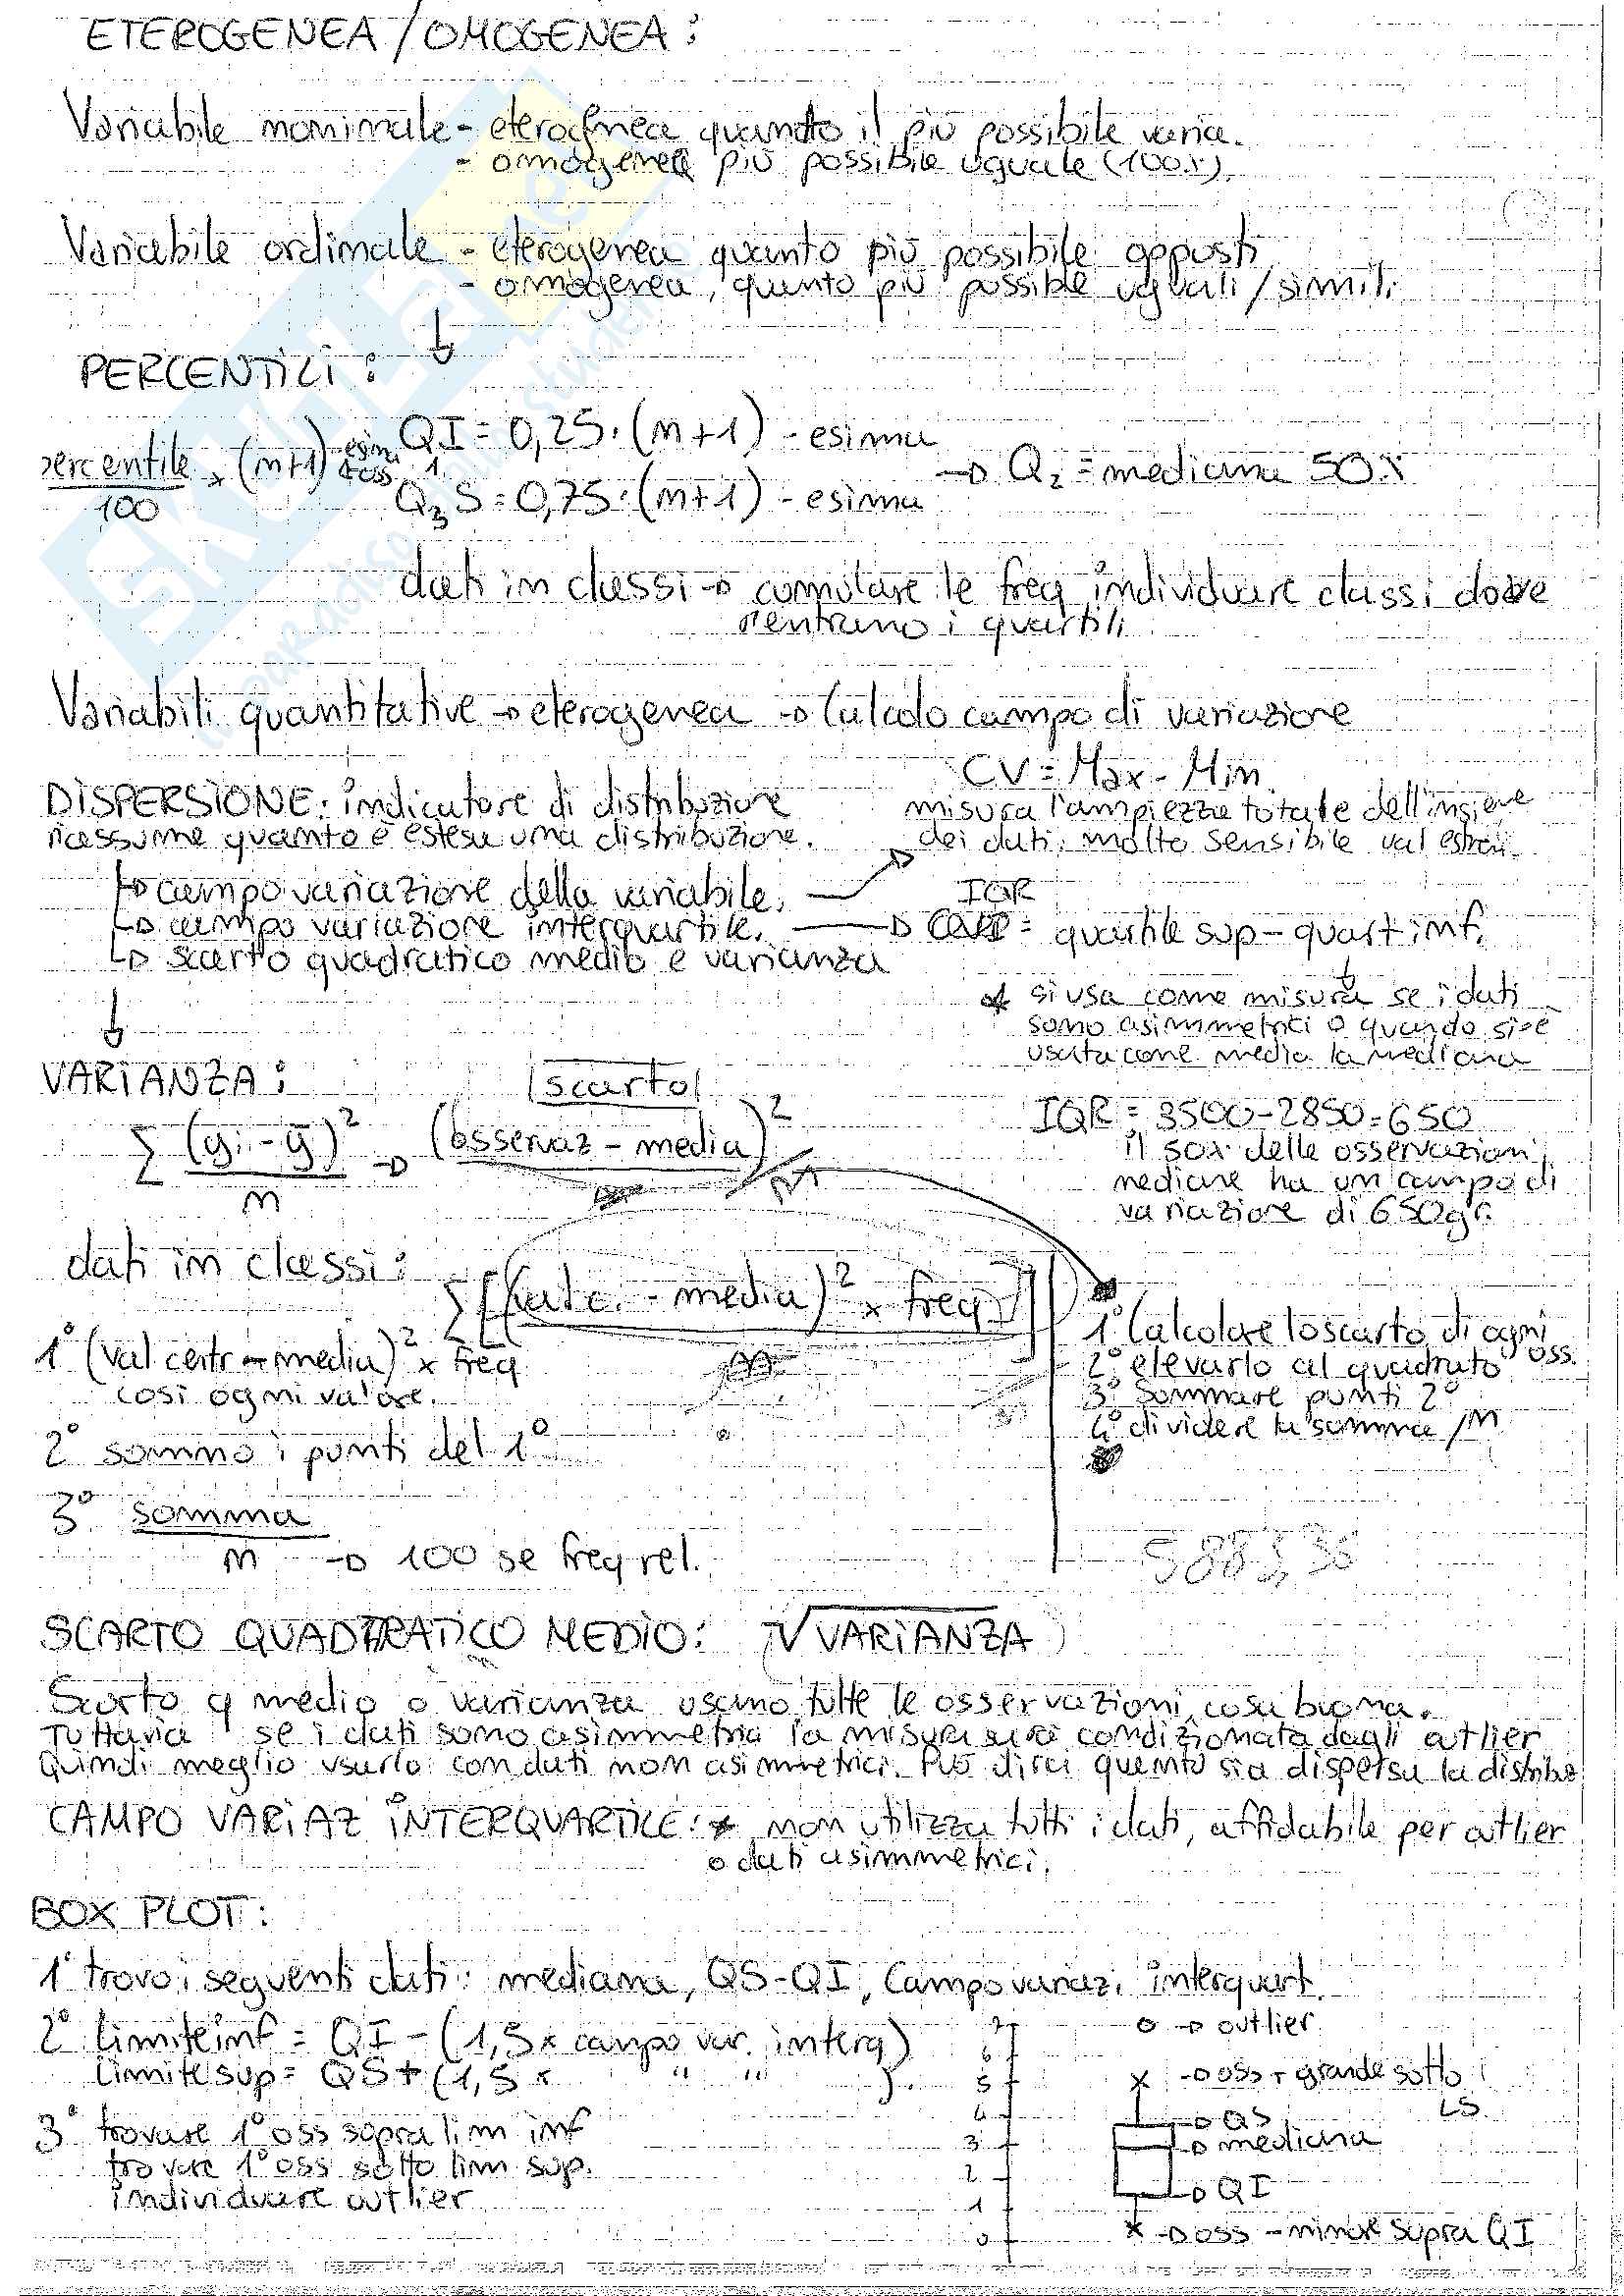 ETEROGENEA/OMOGENEA:
Variabile nominale - eterogenea quanto il più possibile varia.
- omogenea più possibile uguale (100%).
Variabile ordinale - eterogenea quanto più possibile opposti
- omogenea, quanto più possible uguali/simili
↓
PERCENTILI:
percentile/100 × (n+1) esima oss
Q1I = 0,25·(n+1) - esima
Q3S = 0,75·(n+1) - esima
→ Q2 = mediana 50%
dati in classi → cumulare le freq individuare classi dove
rientrano i quartili
Variabili quantitative → eterogenea → Calcolo campo di variazione
CV = Max - Min
misura l'ampiezza totale dell'insieme
dei dati, molto sensibile val estremi.
DISPERSIONE: indicatore di distribuzione
riassume quanto è estesa una distribuzione.
↳ campo variazione della variabile.
↳ campo variazione interquartile. → IQR = quartile sup - quart inf.
↳ scarto quadratico medio e varianza
* si usa come misura se i dati
sono asimmetrici o quando si è
usata come media la mediana
IQR = 3500-2850=650
il 50% delle osservazioni
mediane ha un campo di
variazione di 650gr.
↓
VARIANZA:
|scarto|
Σ (yi - ȳ)²/n → (osservaz - media)²/n
dati in classi: Σ[(val c. - media)² × freq]/n
1° (val centr - media)² × freq
così ogni valore.
2° sommo i punti del 1°
3° somma/n → 100 se freq rel.
1° Calcolare lo scarto di ogni oss.
2° elevarlo al quadrato
3° Sommare punti 2°
4° dividere la somma /n
SCARTO QUADRATICO MEDIO: √VARIANZA
Scarto q medio o varianza usano tutte le osservazioni, cosa buona.
Tuttavia se i dati sono asimmetrici la misura sarà condizionata dagli outlier
Quindi meglio usarlo con dati non asimmetrici. Può dirci quanto sia dispersa la distribuz
CAMPO VARIAZ INTERQUARTILE: * non utilizza tutti i dati, affidabile per outlier
o dati asimmetrici.
BOX PLOT:
1° trovo i seguenti dati: mediana, QS-QI, Campo variaz. interquart.
2° limite inf = QI - (1,5 × campo var. interq)
limite sup = QS + (1,5 × " " ).
3° trovare 1° oss sopra lim inf
trovare 1° oss sotto lim sup.
individuare outlier
7
6
5
4
3
2
1
0
o → outlier
x → oss + grande sotto LS.
→ QS
→ mediana
→ QI
x → oss - minore sopra QI